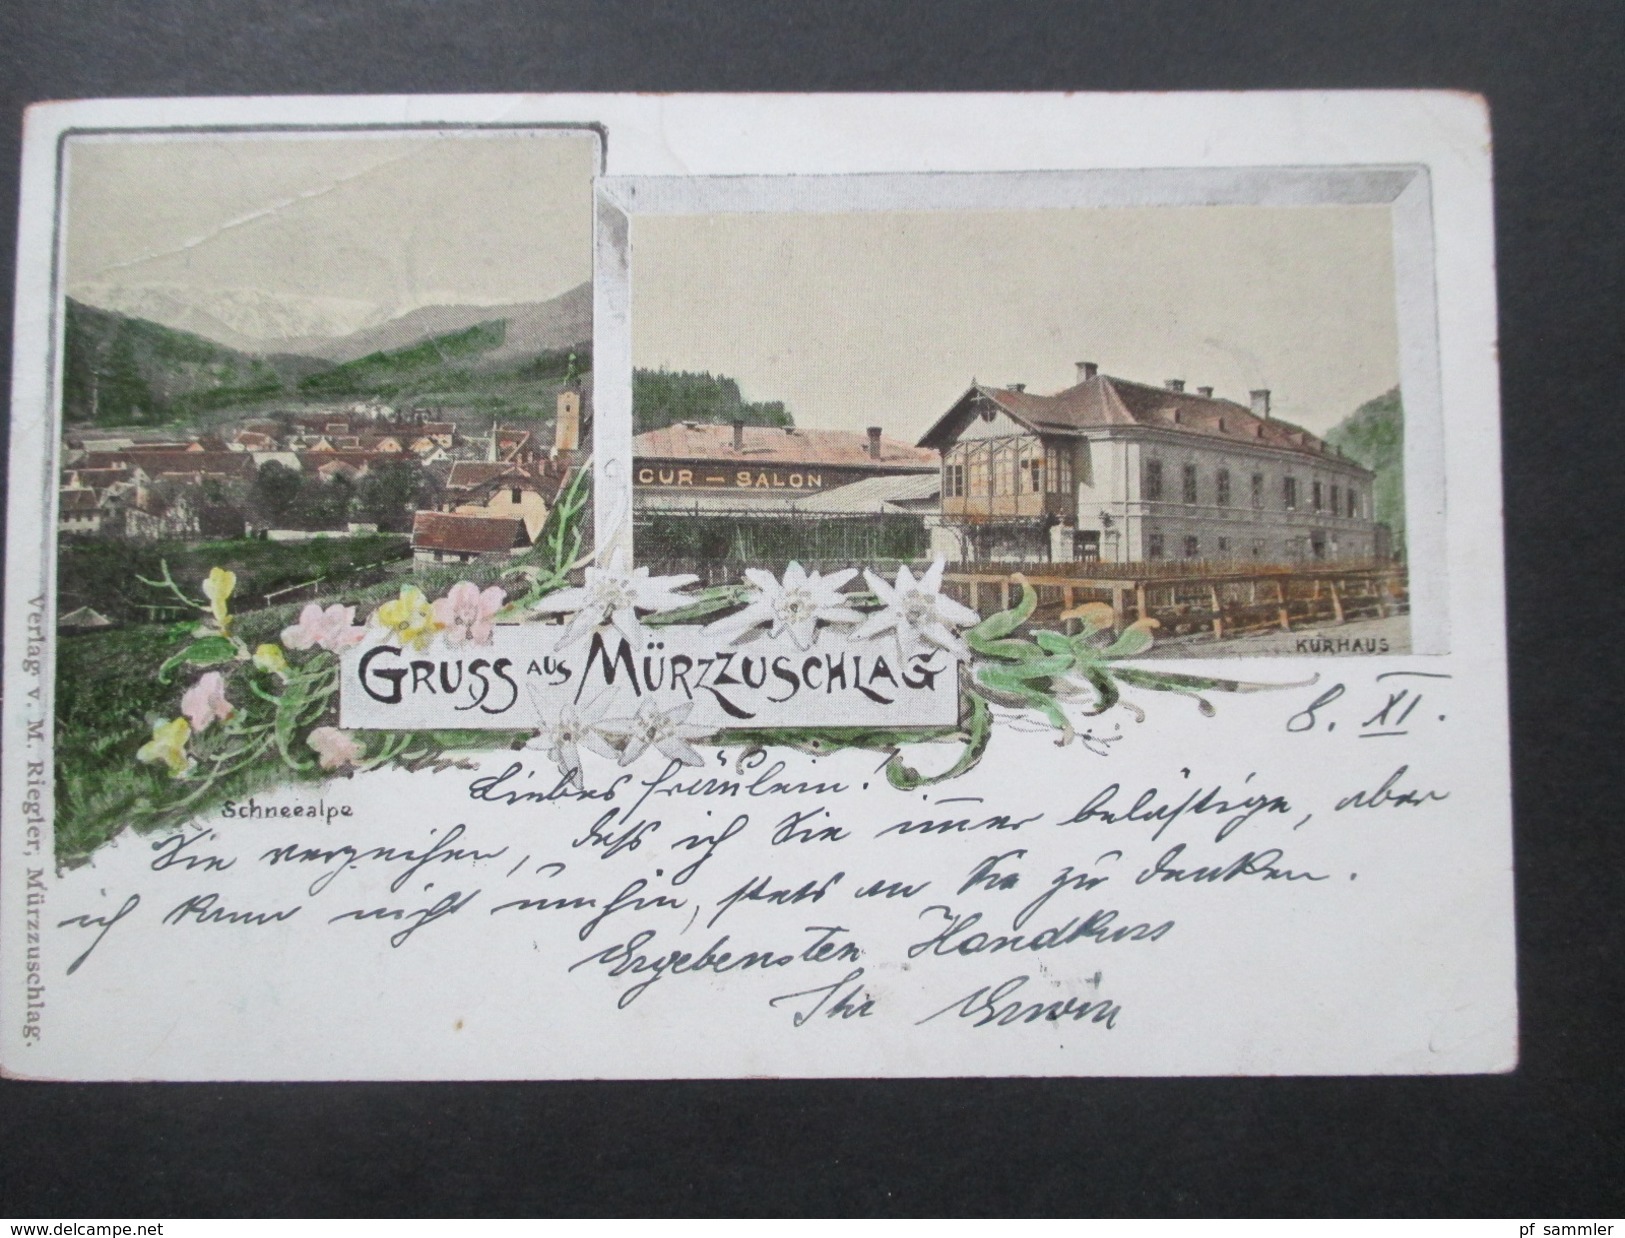 CUR — SALON
KURHAUS
GRUSS AUS MÜRZZUSCHLAG
Schneealpe
Verlag v. M. Riegler, Mürzzuschlag.
8. XI.
Liebes Fräulein!
Sie verzeihen, daß ich Sie immer belästige, aber
ich kann nicht umhin, stets an Sie zu denken.
Ergebensten Handkuss
Ihr Erwin
www.delcampe.net
pf_sammler